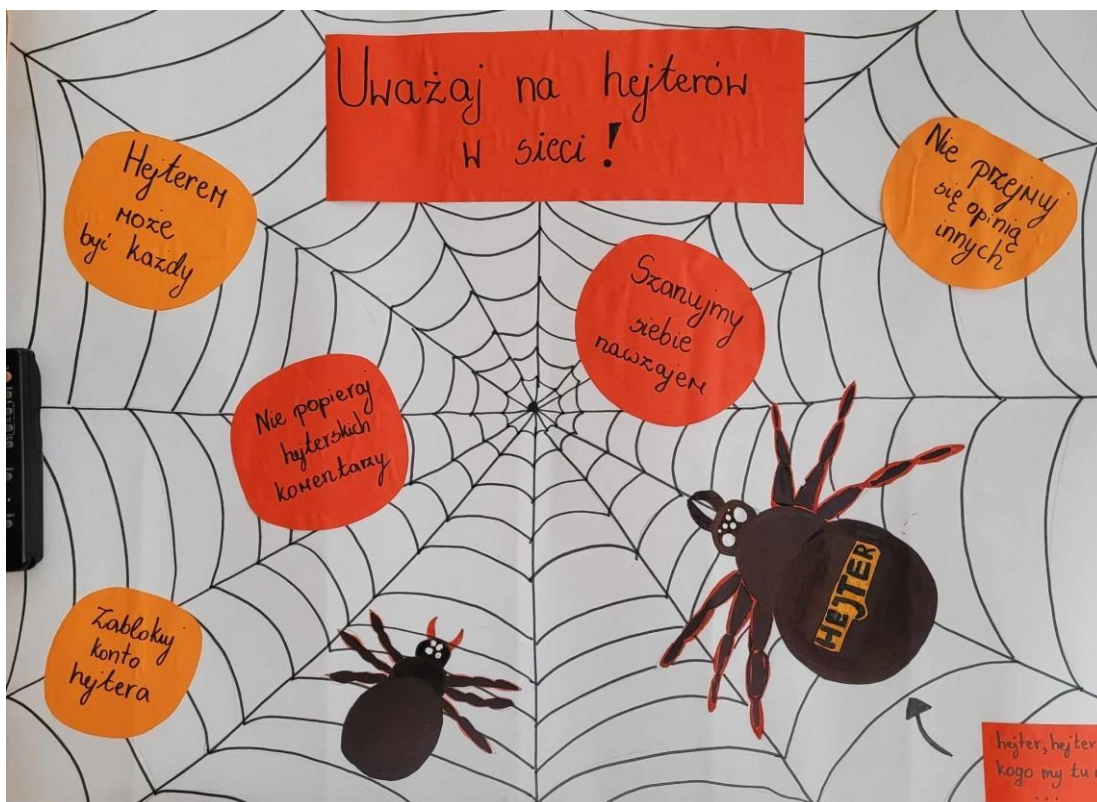 Uważaj na hejterów
w sieci!
Hejterem
może
być każdy
Nie przejmuj
się opinią
innych
Szanujmy
siebie
nawzajem
Nie popieraj
hejterskich
komentarzy
HEJTER
Zablokuj
konto
hejtera
hejter, hejter
kogo my tu
...